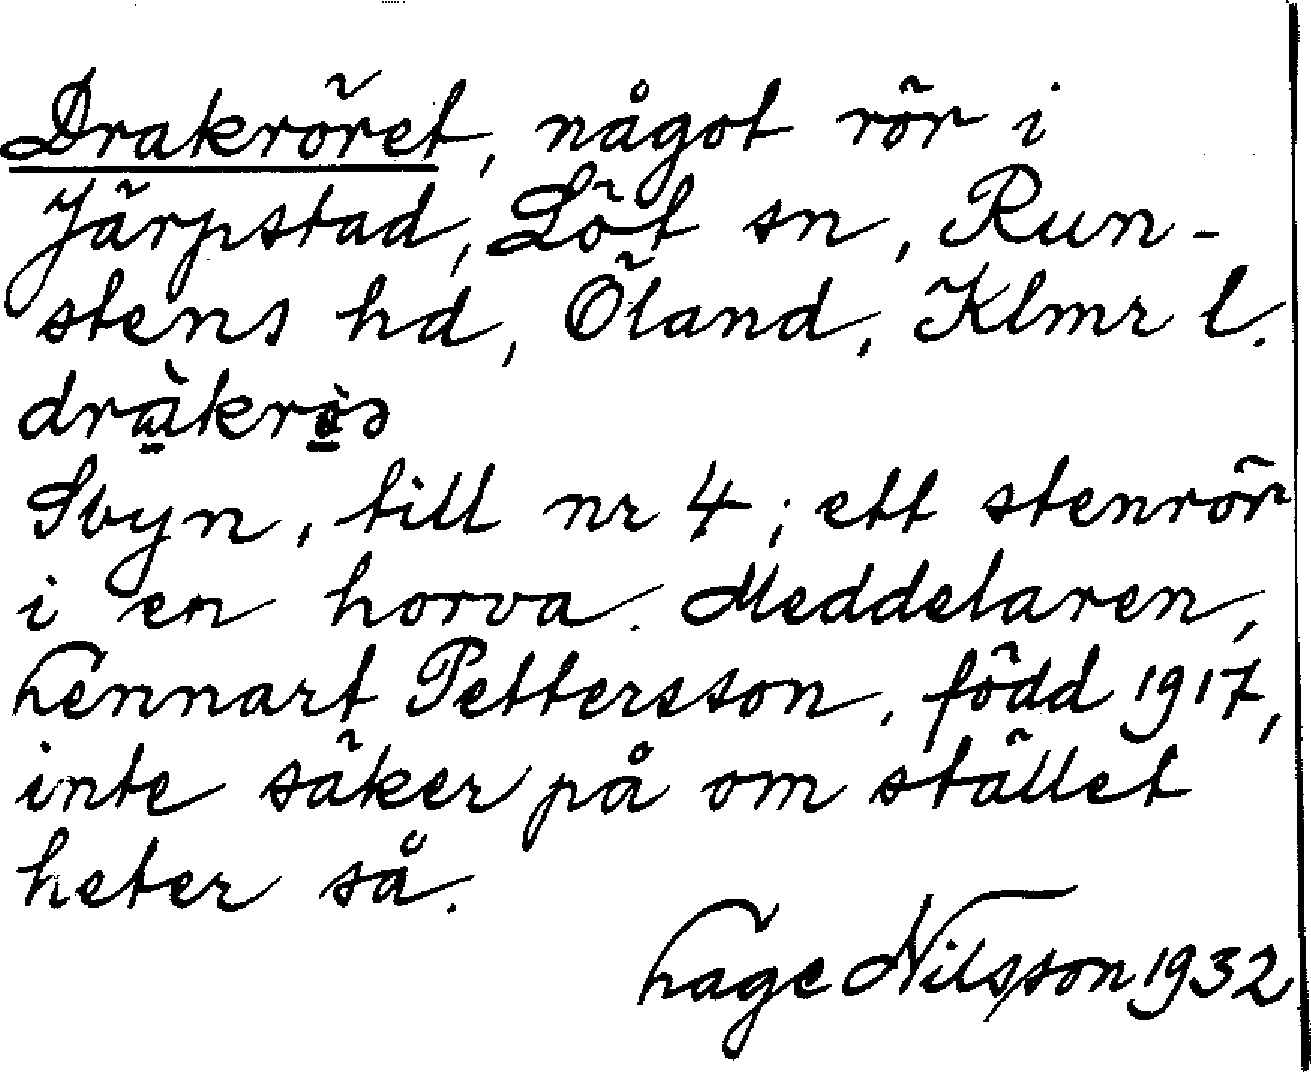 Drakröret, något rör i
Järpstad, Löt sn, Run-
stens hd, Öland, Klmr l.
Sbyn, till nr 4; ett stenrör
i en horva. Meddelaren,
Lennart Pettersson, född 1917,
inte säker på om stället
heter så.
Lage Nilsson 1932